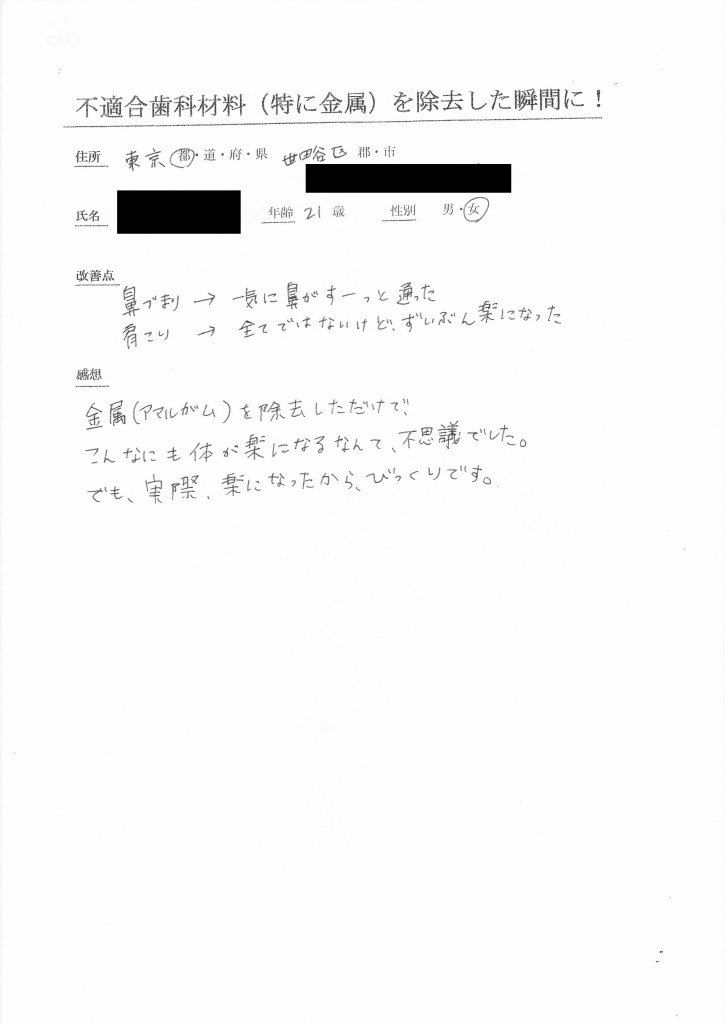 不適合歯科材料（特に金属）を除去した瞬間に！
住所 東京 都・道・府・県 世田谷区 郡・市
氏名 年齢 21 歳 性別 男・女
改善点
鼻づまり → 一気に鼻がすーっと通った
肩こり → 全てではないけど、ずいぶん楽になった
感想
金属(アマルガム)を除去しただけで、
こんなにも体が楽になるなんて、不思議でした。
でも、実際、楽になったから、びっくりです。